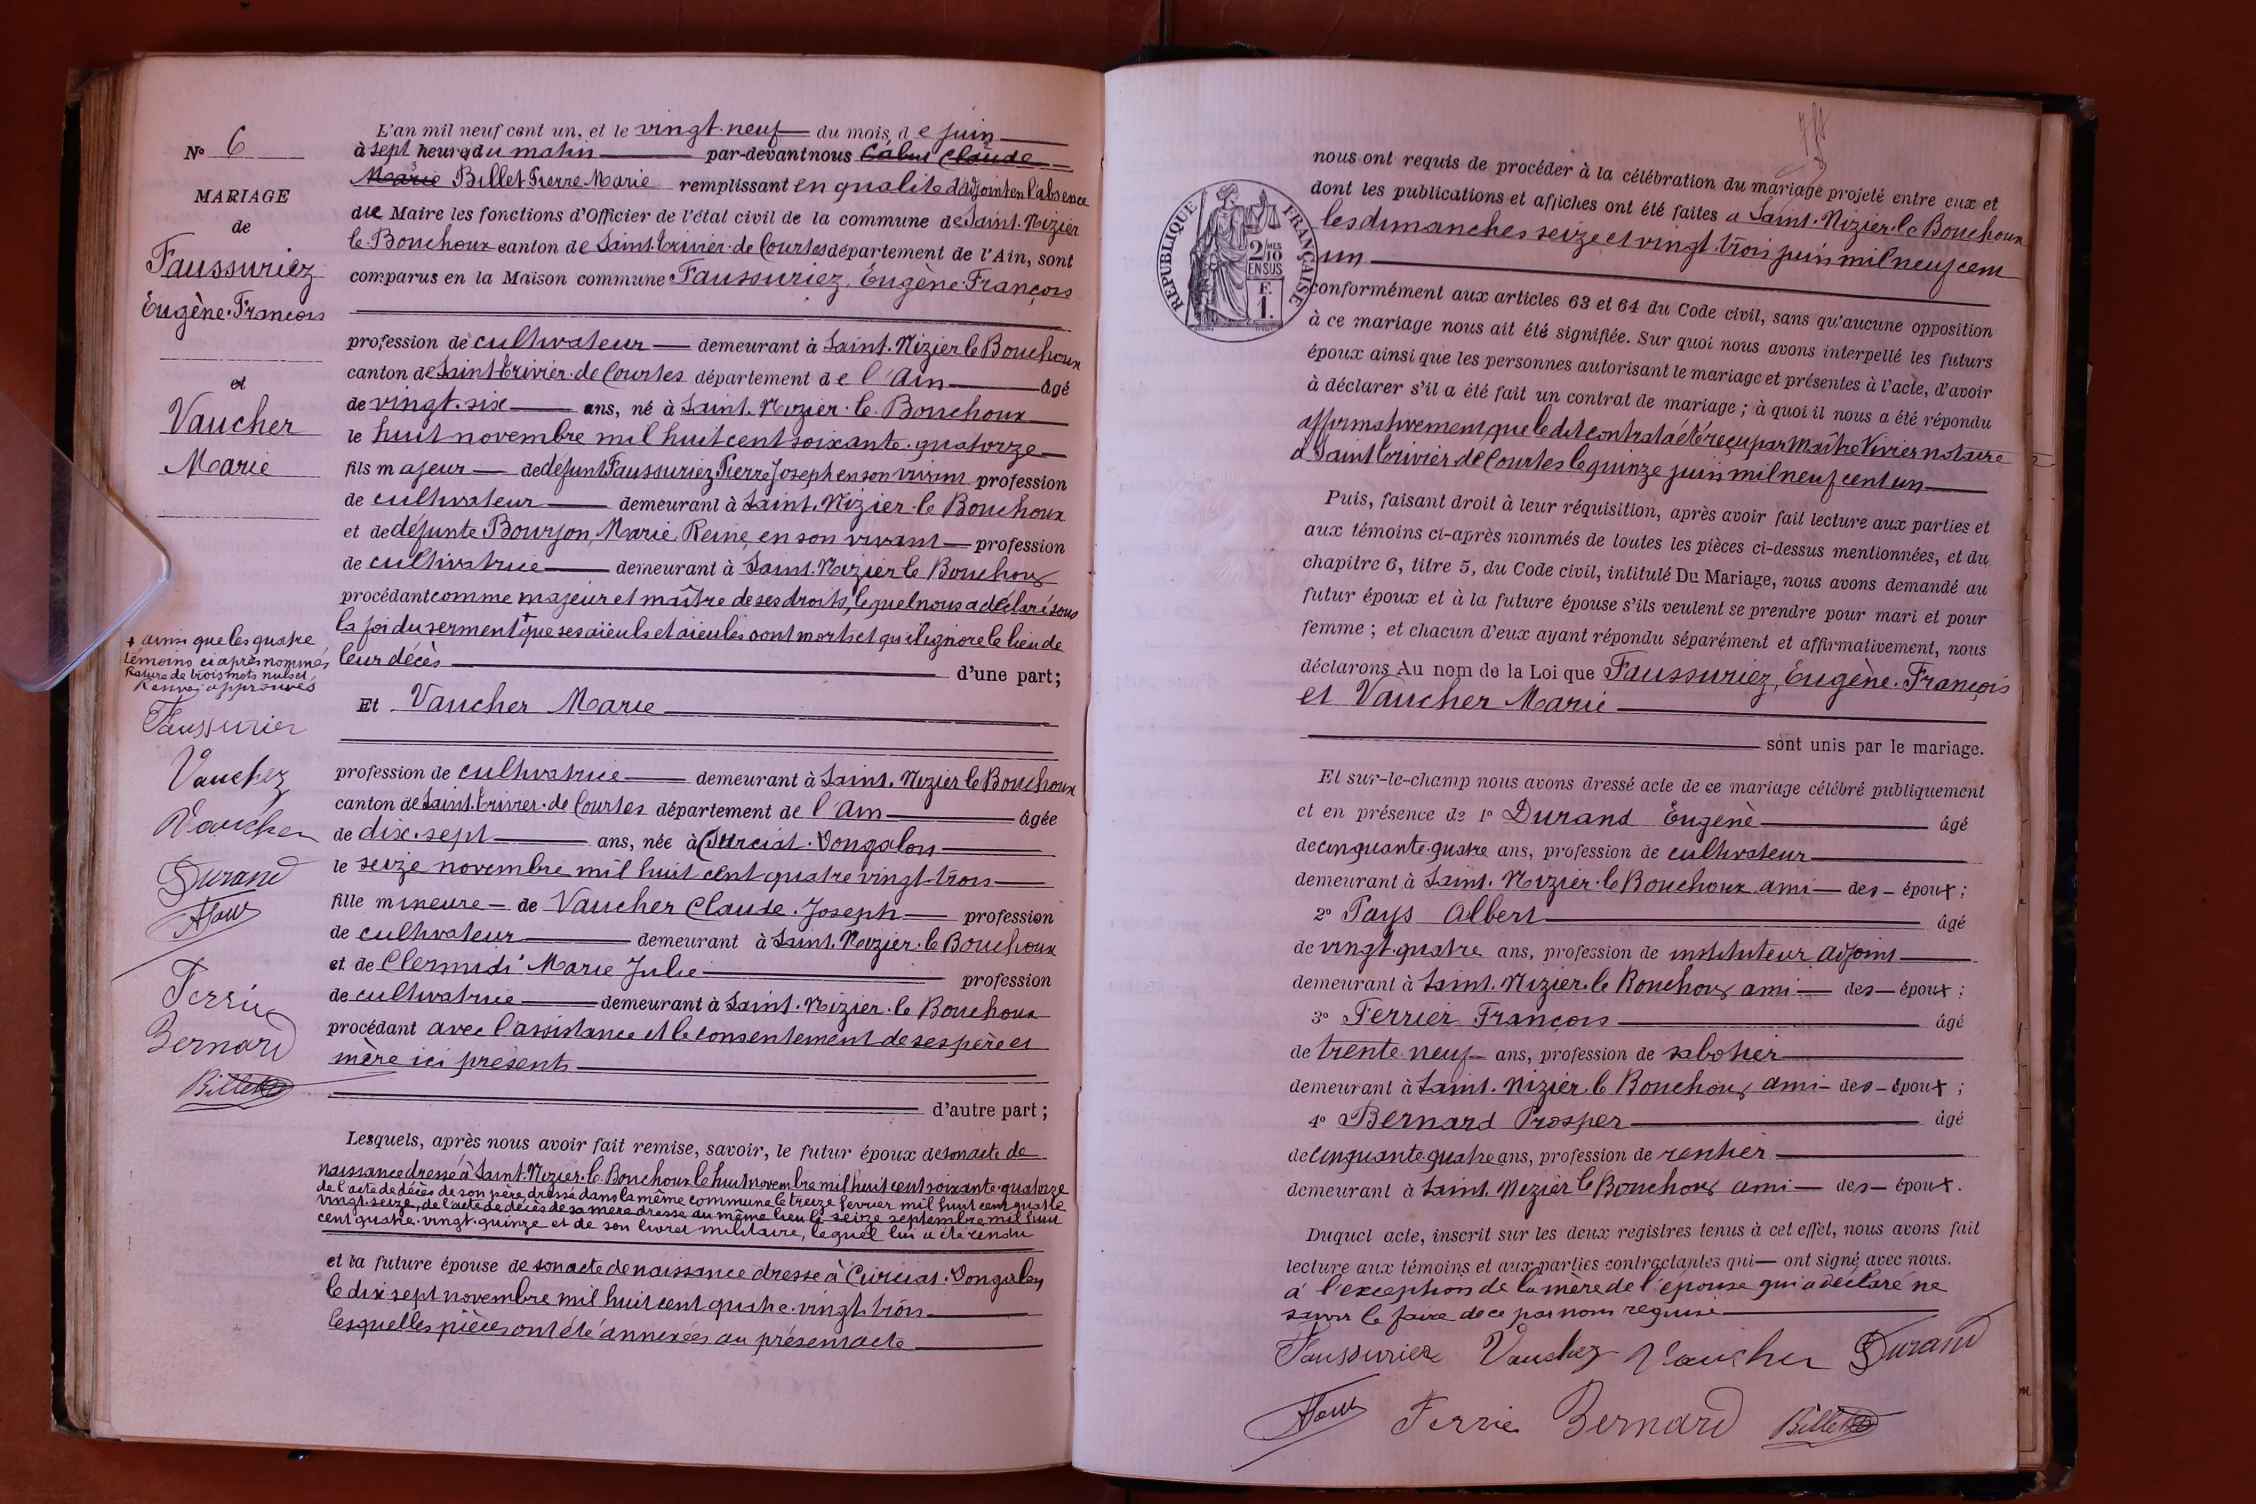 N° 6
MARIAGE
de
Faussuriez
Eugène-François
et
Vaucher
Marie
+ ainsi que les quatre
témoins ci après nommés
Rature de trois mots nuls et
Renvoi approuvés
Faussurier
Vauchez
Vaucher
Durand
Ferrier
Bernard
Billet
L'an mil neuf cent un, et le vingt-neuf du mois de juin
à sept heures du matin par-devant nous Cabut Claude
Marie Billet Pierre Marie remplissant en qualité d'adjoint en l'absence
du Maire les fonctions d'Officier de l'état civil de la commune de Saint-Nizier
le-Bouchoux canton de Saint-Trivier-de Courtes département de l'Ain, sont
comparus en la Maison commune Faussuriez, Eugène-François
profession de cultivateur demeurant à Saint-Nizier le Bouchoux
canton de Saint-Trivier-de Courtes département de l'Ain âgé
de vingt-six ans, né à Saint-Nizier-le-Bouchoux
le huit novembre mil huit cent soixante-quatorze
fils majeur de défunt Faussuriez Pierre Joseph en son vivant profession
de cultivateur demeurant à Saint-Nizier-le Bouchoux
et de défunte Bourjon, Marie Reine, en son vivant profession
de cultivatrice demeurant à Saint-Nizier le Bouchoux
procédant comme majeur et maître de ses droits, lequel nous a déclaré sous
la foi du serment + que ses aïeuls et aïeules sont morts et qu'il ignore le lieu de
leur décès d'une part;
Et Vaucher Marie
profession de cultivatrice demeurant à Saint-Nizier le Bouchoux
canton de Saint-Trivier-de Courtes département de l'Ain âgée
de dix-sept ans, née à Curciat-Dongalon
le seize novembre mil huit cent quatre vingt-trois
fille mineure de Vaucher Claude-Joseph profession
de cultivateur demeurant à Saint-Nizier-le Bouchoux
et de Clermidi Marie Julie profession
de cultivatrice demeurant à Saint-Nizier-le Bouchoux
procédant avec l'assistance et le consentement de ses père et
mère ici présents
d'autre part;
Lesquels, après nous avoir fait remise, savoir, le futur époux de son acte de
naissance dressé à Saint-Nizier-le-Bouchoux le huit novembre mil huit cent soixante-quatorze
de l'acte de décès de son père dressé dans la même commune le treize février mil huit cent quatre
vingt-seize, de l'acte de décès de sa mère dressé au même lieu le seize septembre mil huit
cent quatre-vingt-quinze et de son livret militaire, lequel lui a été rendu
et la future épouse de son acte de naissance dressé à Curciat-Dongalon
le dix sept novembre mil huit cent quatre-vingt-trois
lesquelles pièces ont été annexées au présent acte
RÉPUBLIQUE FRANÇAISE
2/10 EN SUS
F. 1.
nous ont requis de procéder à la célébration du mariage projeté entre eux et
dont les publications et affiches ont été faites à Saint-Nizier-le Bouchoux
les dimanches seize et vingt-trois juin mil neuf cent
un
conformément aux articles 63 et 64 du Code civil, sans qu'aucune opposition
à ce mariage nous ait été signifiée. Sur quoi nous avons interpellé les futurs
époux ainsi que les personnes autorisant le mariage et présentes à l'acte, d'avoir
à déclarer s'il a été fait un contrat de mariage ; à quoi il nous a été répondu
affirmativement, que le dit contrat a été reçu par Maître Vivier notaire
à Saint Trivier de Courtes le quinze juin mil neuf cent un
Puis, faisant droit à leur réquisition, après avoir fait lecture aux parties et
aux témoins ci-après nommés de toutes les pièces ci-dessus mentionnées, et du
chapitre 6, titre 5, du Code civil, intitulé Du Mariage, nous avons demandé au
futur époux et à la future épouse s'ils veulent se prendre pour mari et pour
femme ; et chacun d'eux ayant répondu séparément et affirmativement, nous
déclarons Au nom de la Loi que Faussuriez, Eugène-François
et Vaucher Marie
sont unis par le mariage.
Et sur-le-champ nous avons dressé acte de ce mariage célébré publiquement
et en présence de 1° Durand Eugène âgé
de cinquante-quatre ans, profession de cultivateur
demeurant à Saint-Nizier-le Bouchoux ami des époux ;
2° Pays Albert âgé
de vingt-quatre ans, profession de instituteur adjoint
demeurant à Saint-Nizier-le Bouchoux ami des époux ;
3° Ferrier François âgé
de trente-neuf ans, profession de sabotier
demeurant à Saint-Nizier-le Bouchoux ami des époux ;
4° Bernard Prosper âgé
de cinquante quatre ans, profession de rentier
demeurant à Saint-Nizier le Bouchoux ami des époux.
Duquel acte, inscrit sur les deux registres tenus à cet effet, nous avons fait
lecture aux témoins et aux parties contractantes qui ont signé avec nous.
à l'exception de la mère de l'épouse qui a déclaré ne
savoir le faire de ce par nous requise
Faussurier Vauchez Vaucher Durand
Ferrier Bernard Billet